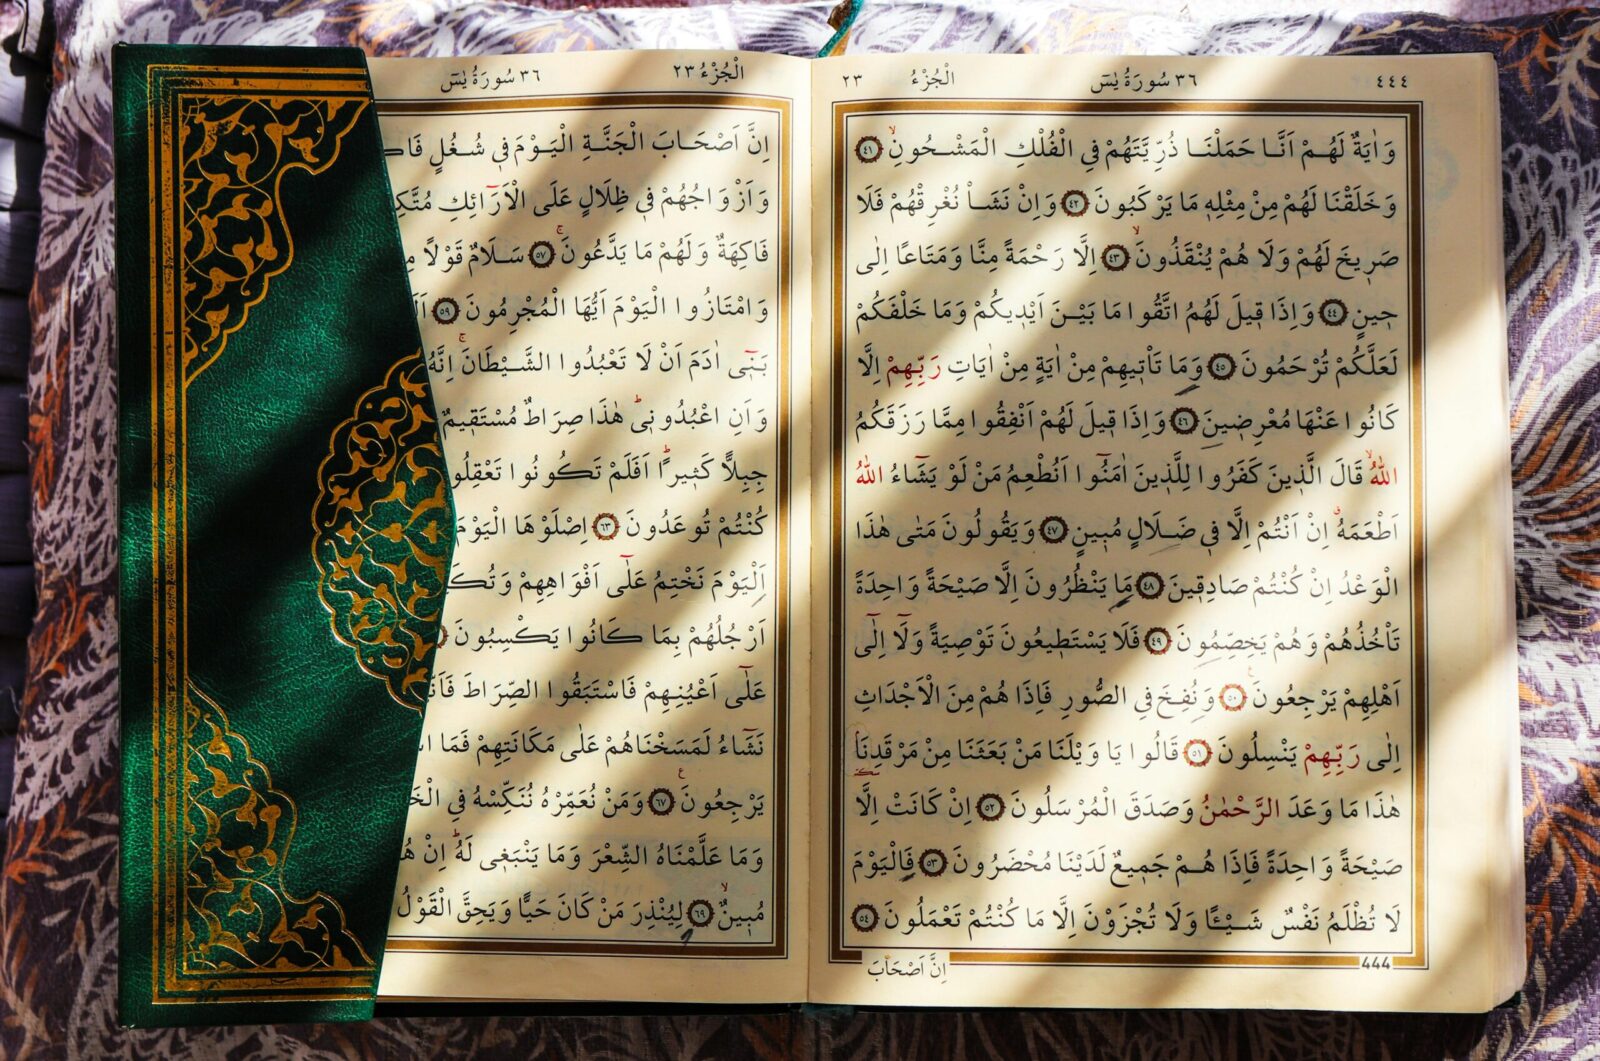 ٤٤٤ ٣٦ سُورَةُ يٰسٓ الْجُزْءُ ٢٣
وَاٰيَةٌ لَهُمْ اَنَّا حَمَلْنَا ذُرِّيَّتَهُمْ فِي الْفُلْكِ الْمَشْحُونِۙ ٤١
وَخَلَقْنَا لَهُمْ مِنْ مِثْلِه۪ مَا يَرْكَبُونَ ٤٢ وَاِنْ نَشَأْ نُغْرِقْهُمْ فَلَا
صَر۪يخَ لَهُمْ وَلَا هُمْ يُنْقَذُونَۙ ٤٣ اِلَّا رَحْمَةً مِنَّا وَمَتَاعًا اِلٰى
ح۪ينٍ ٤٤ وَاِذَا ق۪يلَ لَهُمُ اتَّقُوا مَا بَيْنَ اَيْد۪يكُمْ وَمَا خَلْفَكُمْ
لَعَلَّكُمْ تُرْحَمُونَ ٤٥ وَمَا تَأْت۪يهِمْ مِنْ اٰيَةٍ مِنْ اٰيَاتِ رَبِّهِمْ اِلَّا
كَانُوا عَنْهَا مُعْرِض۪ينَ ٤٦ وَاِذَا ق۪يلَ لَهُمْ اَنْفِقُوا مِمَّا رَزَقَكُمُ
اللّٰهُۙ قَالَ الَّذ۪ينَ كَفَرُوا لِلَّذ۪ينَ اٰمَنُٓوا اَنُطْعِمُ مَنْ لَوْ يَشَٓاءُ اللّٰهُ
اَطْعَمَهُۗ اِنْ اَنْتُمْ اِلَّا ف۪ي ضَلَالٍ مُب۪ينٍ ٤٧ وَيَقُولُونَ مَتٰى هٰذَا
الْوَعْدُ اِنْ كُنْتُمْ صَادِق۪ينَ ٤٨ مَا يَنْظُرُونَ اِلَّا صَيْحَةً وَاحِدَةً
تَأْخُذُهُمْ وَهُمْ يَخِصِّمُونَ ٤٩ فَلَا يَسْتَط۪يعُونَ تَوْصِيَةً وَلَٓا اِلٰٓى
اَهْلِهِمْ يَرْجِعُونَ۟ ٥٠ وَنُفِخَ فِي الصُّورِ فَاِذَا هُمْ مِنَ الْاَجْدَاثِ
اِلٰى رَبِّهِمْ يَنْسِلُونَ ٥١ قَالُوا يَا وَيْلَنَا مَنْ بَعَثَنَا مِنْ مَرْقَدِنَا
هٰذَا مَا وَعَدَ الرَّحْمٰنُ وَصَدَقَ الْمُرْسَلُونَ ٥٢ اِنْ كَانَتْ اِلَّا
صَيْحَةً وَاحِدَةً فَاِذَا هُمْ جَم۪يعٌ لَدَيْنَا مُحْضَرُونَ ٥٣ فَالْيَوْمَ
لَا تُظْلَمُ نَفْسٌ شَيْـًٔا وَلَا تُجْزَوْنَ اِلَّا مَا كُنْتُمْ تَعْمَلُونَ ٥٤
444
اِنَّ اَصْحَابَ
الْجُزْءُ ٢٣ ٣٦ سُورَةُ يٰسٓ
اِنَّ اَصْحَابَ الْجَنَّةِ الْيَوْمَ ف۪ي شُغُلٍ
وَاَزْوَاجُهُمْ ف۪ي ظِلَالٍ عَلَى الْاَرَٓائِكِ
فَاكِهَةٌ وَلَهُمْ مَا يَدَّعُونَۚ ٥٧ سَلَامٌ قَوْلًا
وَامْتَازُوا الْيَوْمَ اَيُّهَا الْمُجْرِمُونَ ٥٩
بَن۪ٓي اٰدَمَ اَنْ لَا تَعْبُدُوا الشَّيْطَانَۚ اِنَّهُ
وَاَنِ اعْبُدُون۪يۜ هٰذَا صِرَاطٌ مُسْتَق۪يمٌ
جِبِلًّا كَث۪يرًاۜ اَفَلَمْ تَكُونُوا
كُنْتُمْ تُوعَدُونَ ٦٣ اِصْلَوْهَا الْيَوْمَ
اَلْيَوْمَ نَخْتِمُ عَلٰٓى اَفْوَاهِهِمْ
اَرْجُلُهُمْ بِمَا كَانُوا يَكْسِبُونَ
عَلٰٓى اَعْيُنِهِمْ فَاسْتَبَقُوا الصِّرَاطَ
نَشَٓاءُ لَمَسَخْنَاهُمْ عَلٰى مَكَانَتِهِمْ فَمَا
يَرْجِعُونَ۟ ٦٧ وَمَنْ نُعَمِّرْهُ نُنَكِّسْهُ فِي
وَمَا عَلَّمْنَاهُ الشِّعْرَ وَمَا يَنْبَغ۪ي لَهُۜ اِنْ
مُب۪ينٌۙ ٦٩ لِيُنْذِرَ مَنْ كَانَ حَيًّا وَيَحِقَّ الْقَوْلُ